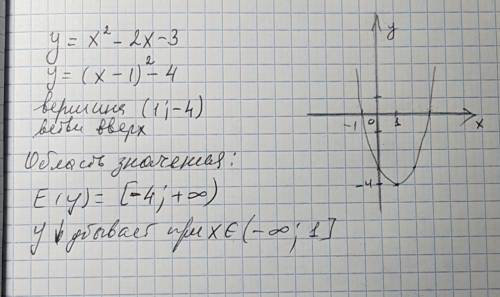 y = x² - 2x - 3
y = (x - 1)² - 4
вершина (1; -4)
ветви вверх
Область значения:
E(y) = [-4; +∞)
y ↓ убывает при x ∈ (-∞; 1]
y
0
-1
1
x
-4